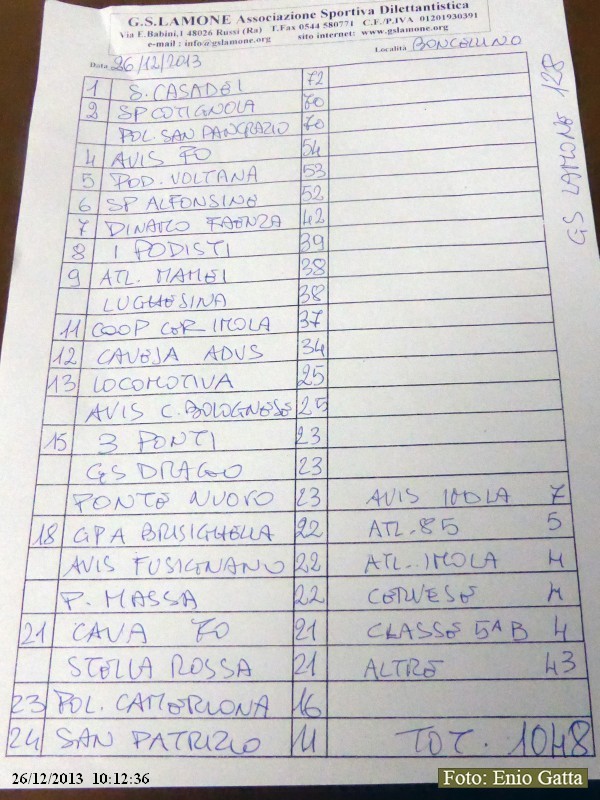 G.S.LAMONE Associazione Sportiva Dilettantistica
Via E.Babini,1 48026 Russi (Ra) T.Fax 0544 580771 C.F./P.IVA 01201930391
e-mail : info@gslamone.org sito internet: www.gslamone.org
Data 26/12/2013 Località BONCELLINO
GS LAMONE 128
1 S. CASADEI 72
2 SP COTIGNOLA 70
POL. SAN PANCRAZIO 70
4 AVIS 70 54
5 POD. VOLTANA 53
6 SP ALFONSINE 52
7 DINAMO FAENZA 42
8 I PODISTI 39
9 ATL. MAMELI 38
LUGHESINA 38
11 COOP CER IMOLA 37
12 CAVEJA ADVS 34
13 LOCOMOTIVA 25
AVIS C. BOLOGNESE 25
15 3 PONTI 23
GS DRAGO 23
PONTE NUOVO 23 AVIS IMOLA 7
18 GPA BRISIGHELLA 22 ATL. 85 5
AVIS FUSIGNANO 22 ATL. IMOLA 4
P. MASSA 22 CERVESE 4
21 CAVA 70 21 CLASSE 5ª B 4
STELLA ROSSA 21 ALTRE 43
23 POL. CAMERLONA 16
24 SAN PATRIZIO 11 TOT. 1048
26/12/2013 10:12:36
Foto: Enio Gatta